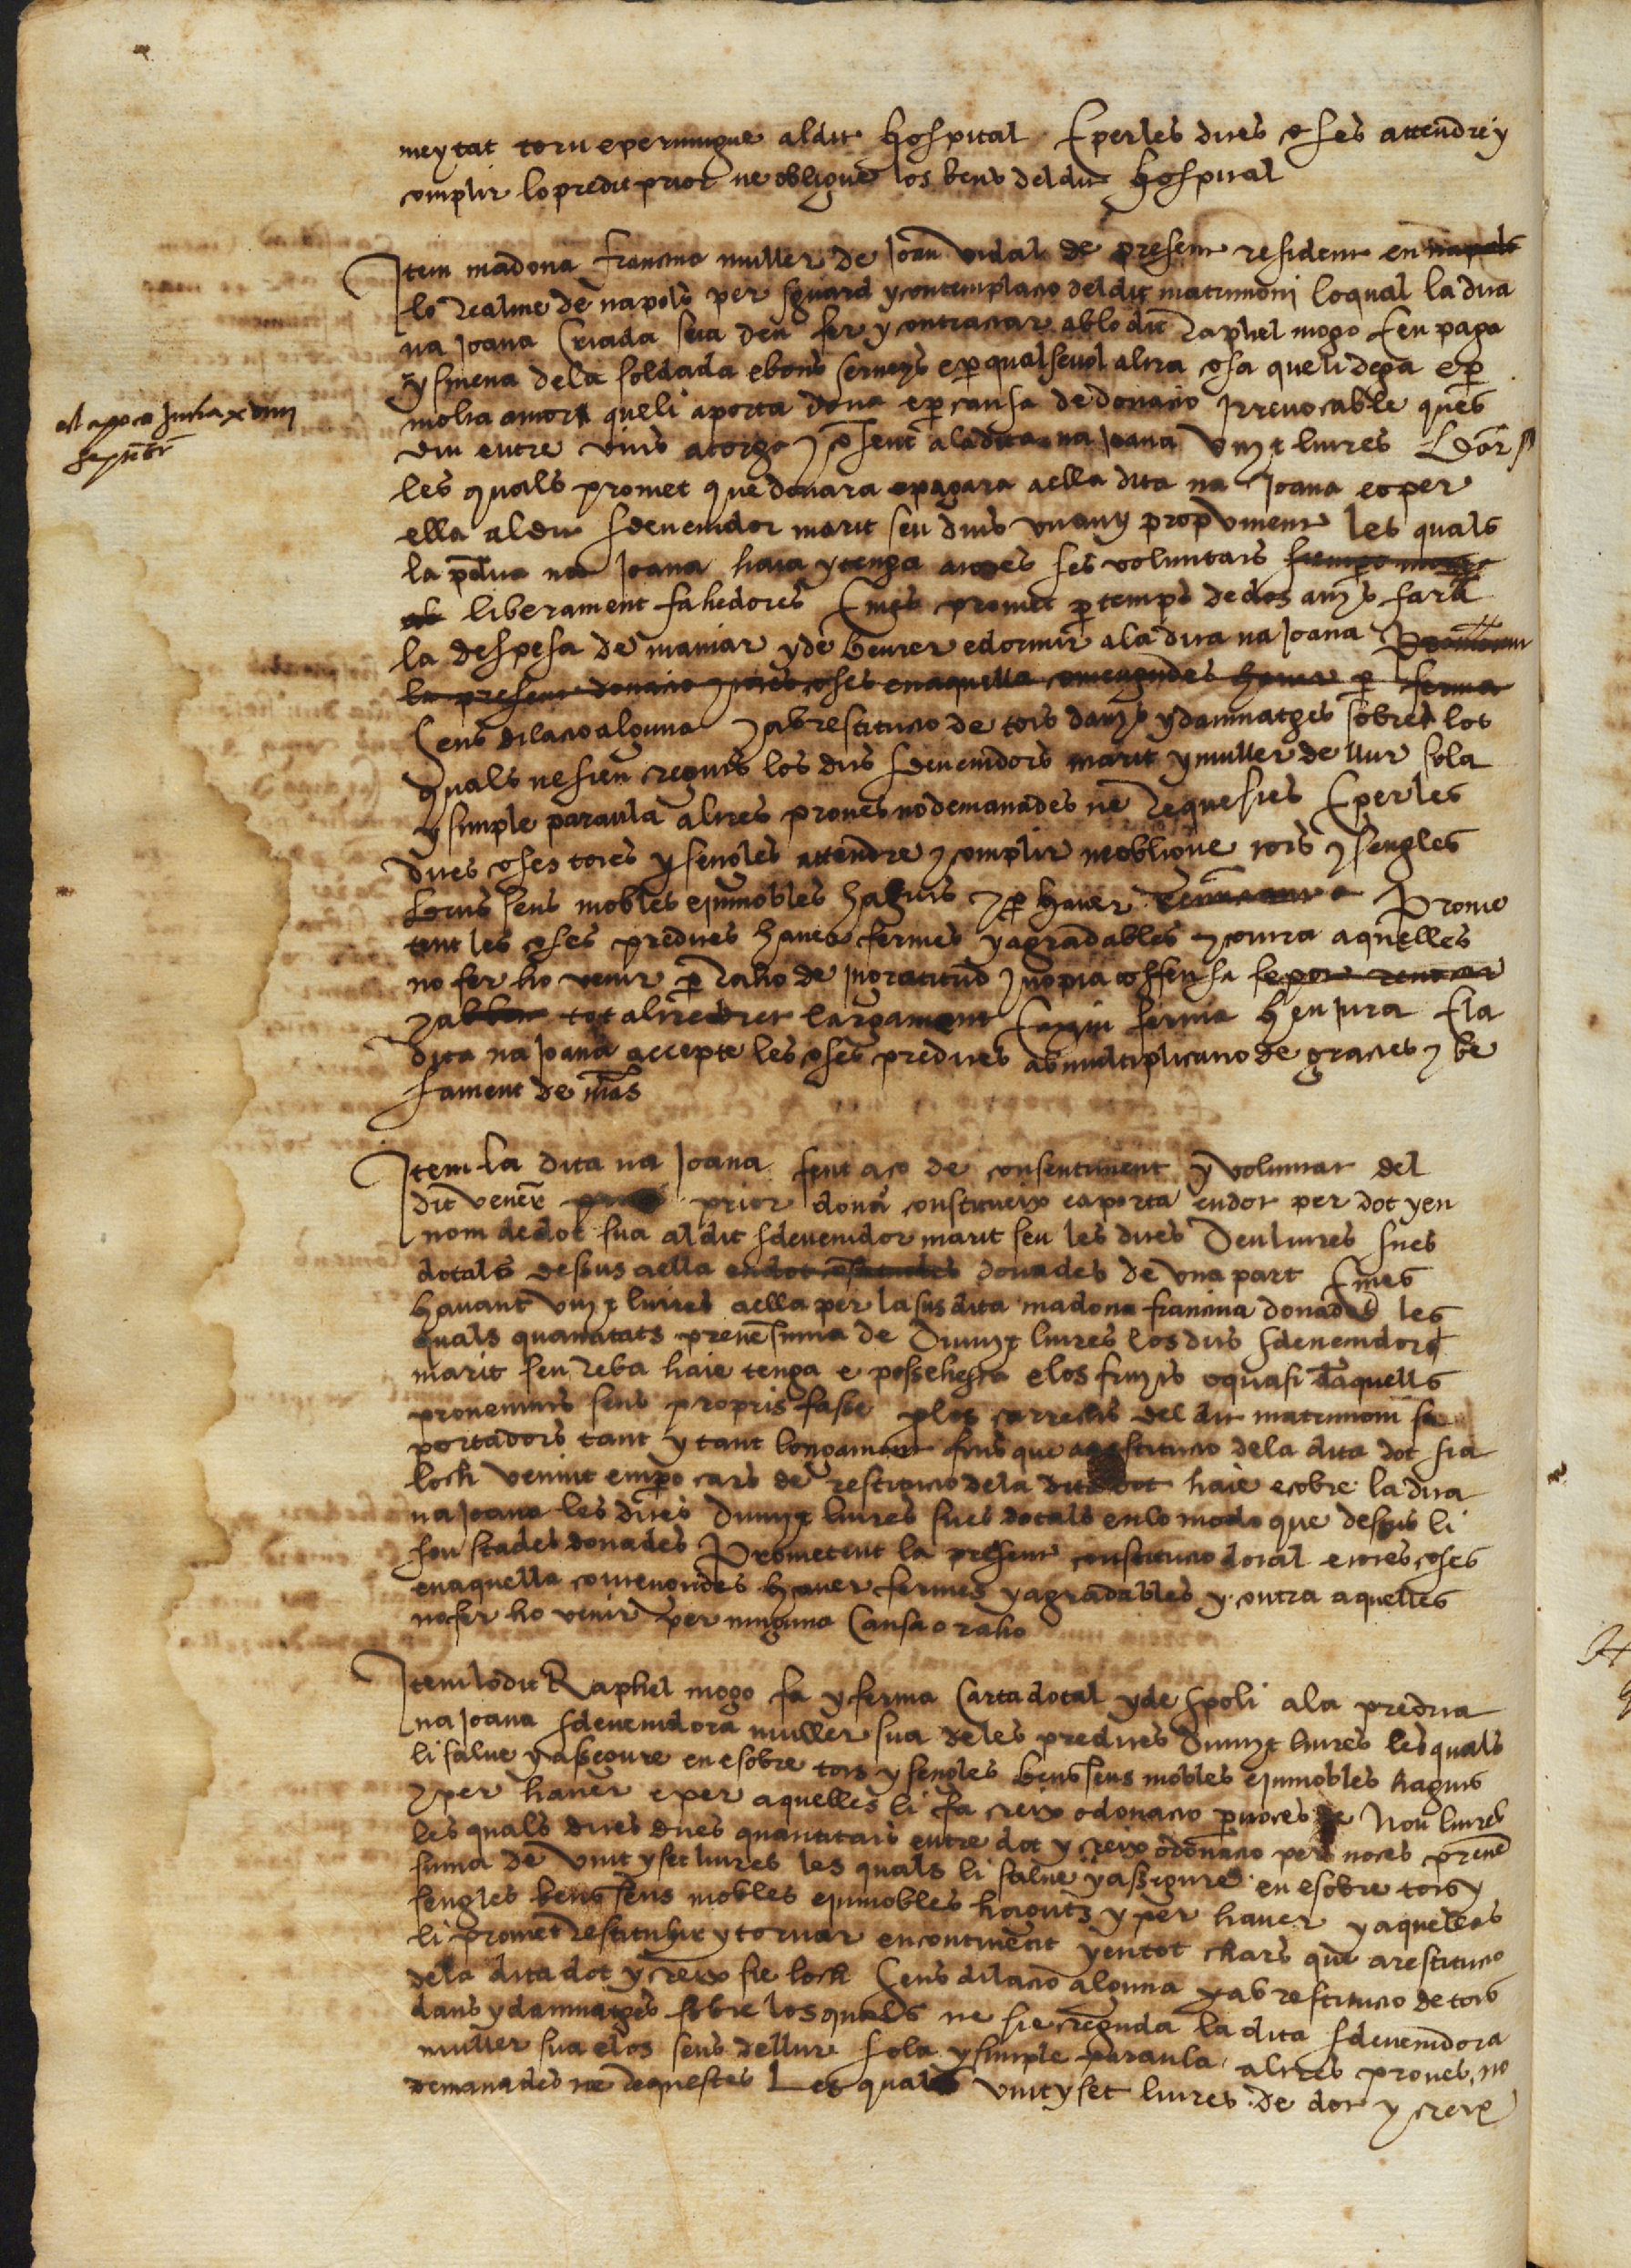 meytat torn e pervingue al dit hospital E per les dites coses attendre y
complir lo predit prior ne obligue los bens del dit hospital
Item madona francina muller de Joan vidal de present resident en napols
lo Realme de napols per sguard y contemplacio del dit matrimoni loqual la dita
na Joana Criada sua deu fer y contractar ab lo dit Raphel mogo E en paga
y smena dela soldada e bons serveys e per qual sevol altra cosa que li dega e per
molta amor queli aporta dona e per causa de donacio irrevocable ques
diu entre vius atorga y consent ala dita na Joana lliures
les quals promet que donara e pagara aella dita na Joana e o per
ella al dit sdevenidor marit seu dins un any propvinent les quals
la pdita na Joana haia y tenga a totes ses voluntats
liberament fahedores E mes promet p temps de dos anys fara
la despesa de maniar y de beurer e dormir ala dita na Joana
la present donacio y totes coses en aquella contengudes haver p ferma
Sens dilacio alguna y ab restitucio de tots danys y damnatges sobre los
quals ne sien creguts los dits sdevenidors marit y muller de llur sola
y simple paraula altres proves no demanades ne Requestes E per les
dites coses totes y sengles attendre y complir ne oblique tots y sengles
bens seus mobles e immobles haguts y p haver Prome
tent les coses predites haver fermes y agradables y contra aquelles
no fer ho venir p Raho de ingratitud inopia offensa
tot altre dret largament ferma y en jura E la
dita na Joana accepte les coses predites ab multiplicatio de gracies y be
sament de mas
est apoca
Item la dita na Joana fent aço de consentiment y voluntat del
dit vener prior dona constitueix e aporta en dot per dot y en
nom de dot sua al dit sdevenidor marit seu les dites Deu lliures sues
dotals dessus aella donades de una part E mes
havant lliures aella per la susdita madona francina donades les
quals quantitats prenen suma de lliures los dits sdevenidors
marit seu Reba haie tenga e possehesca e los fruyts o quasi daquells
provenints seus propris fasse p los carrechs del dit matrimoni su
portadors tant y tant longament fins que a restitucio dela dita dot sia
loch venint empo cars de restitucio dela dita dot haie e cobre la dita
na Joana les dites lliures sues dotals en lo modo que dessus li
son stades donades Prometent la present constitucio dotal e totes coses
en aquella contengudes haver fermes y agradables y contra aquelles
no fer ho venir per ninguna Causa o raho
Item lo dit Raphel mogo fa y ferma Carta dotal y de spoli ala predita
na Joana sdevenidora muller sua deles predites lliures les quals
li salve y assegure en e sobre tots y sengles bens seus mobles e immobles haguts
y per haver e per aquelles li fa creix o donacio p noces de Nou lliures
les quals dites dues quantitats entre dot y creix o donacio per noces prenen
suma de vint y set lliures les quals li salve y assegure en e sobre tots y
sengles bens seus mobles e immobles haguts y per haver y aquelles
li promet Restituhir y tornar encontinent y en tot chars que a restitucio
dela dita dot y creix sie loch Sens dilacio alguna y ab restitucio de tots
dans y damnatges sobre los quals ne sie creguda la dita sdevenidora
muller sua e los seus de llur sola y simple paraula altres proves no
demanades ne Requestes Les quals vint y set lliures de dot y creix